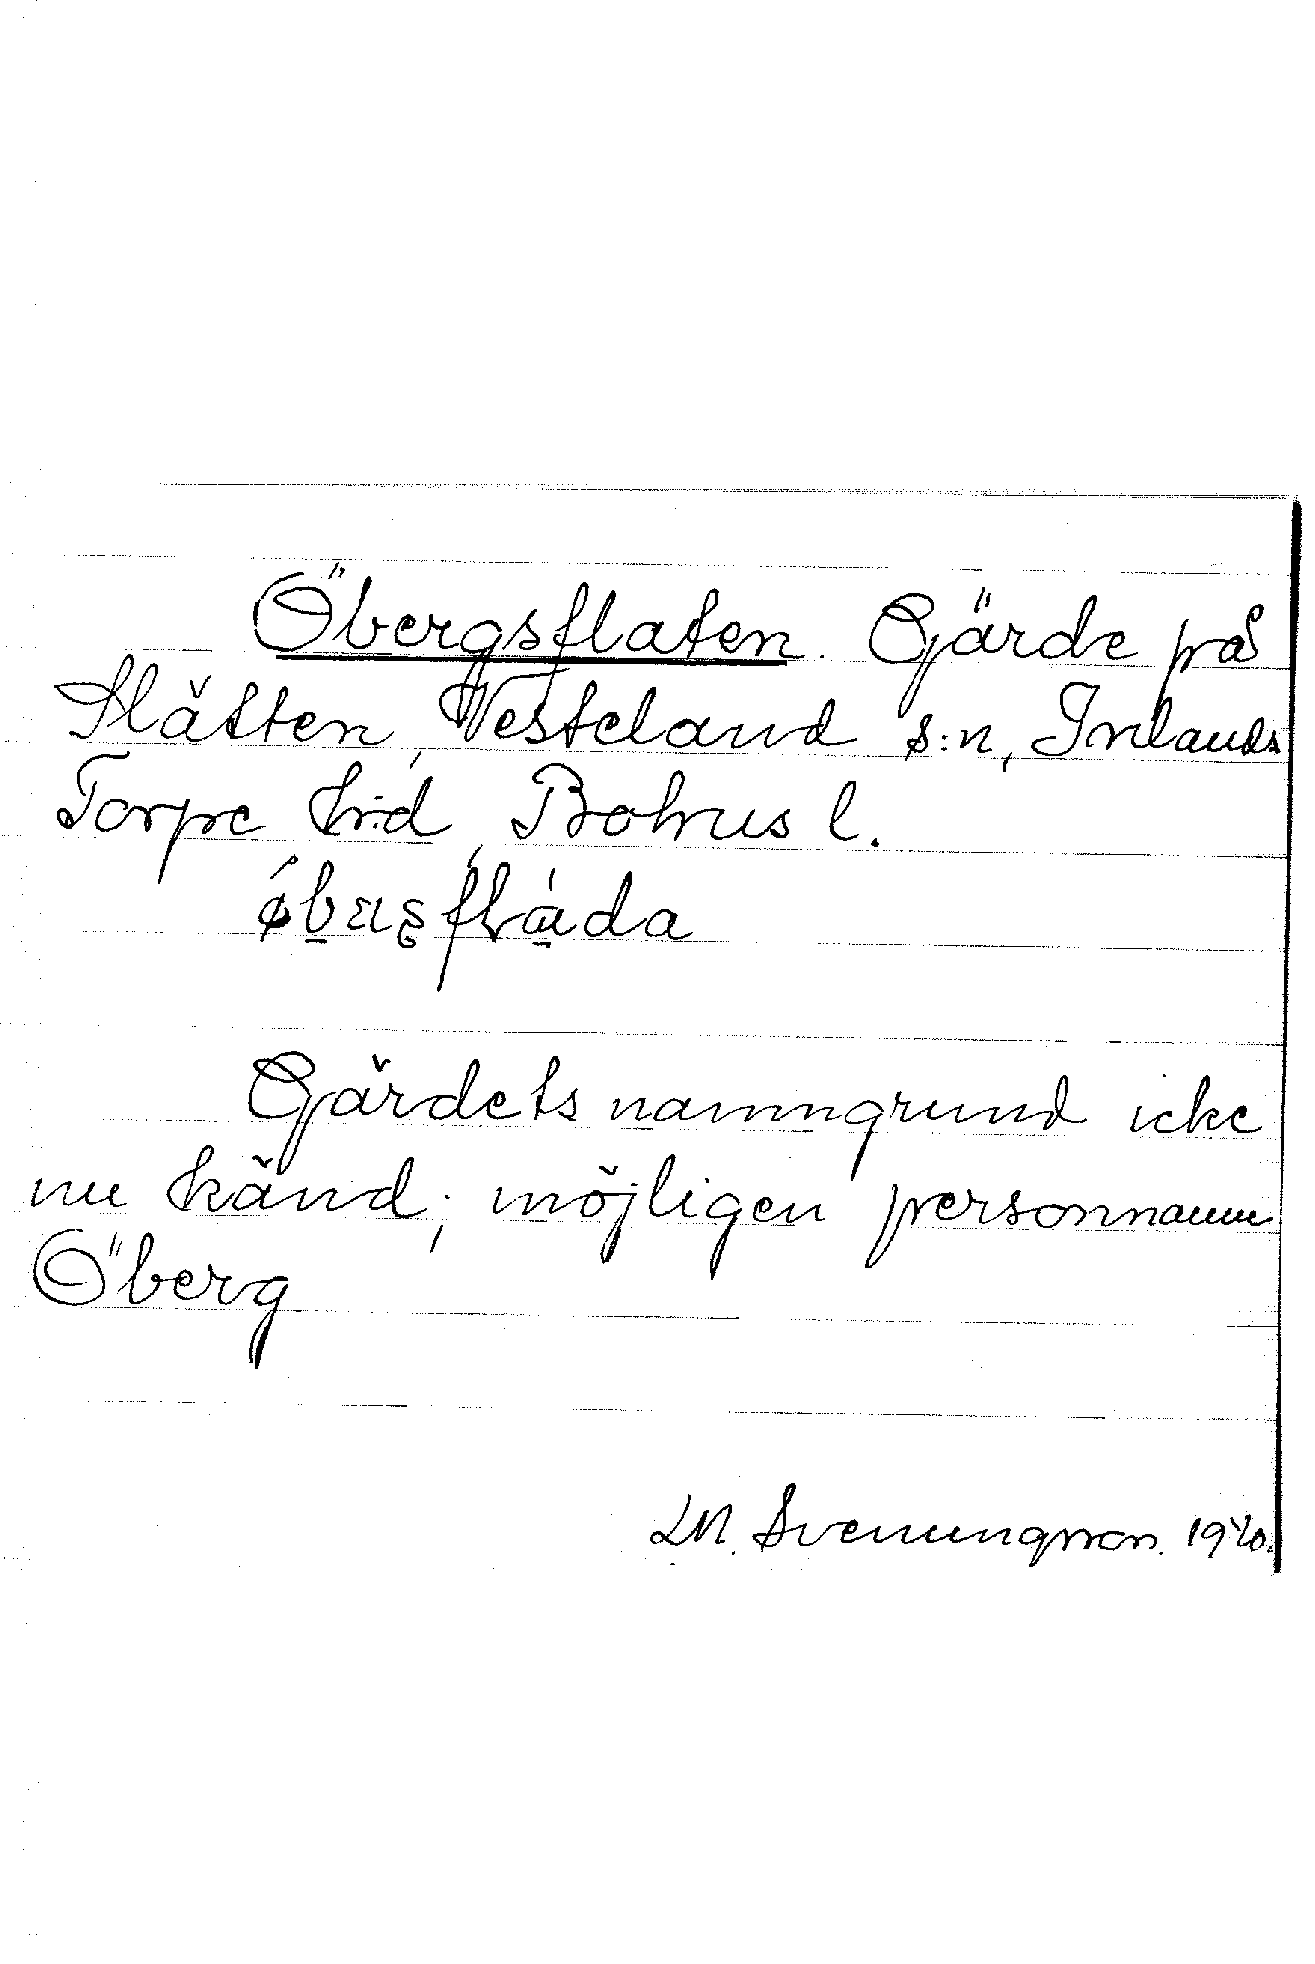 Öbergsflaten. Gärde på
Slätten, Vesteland s:n, Inlands
Torpe h:d, Bohus l.
Gärdets namngrund icke
nu känd; möjligen personnamn
Öberg
LM. Svenungsson. 1920.